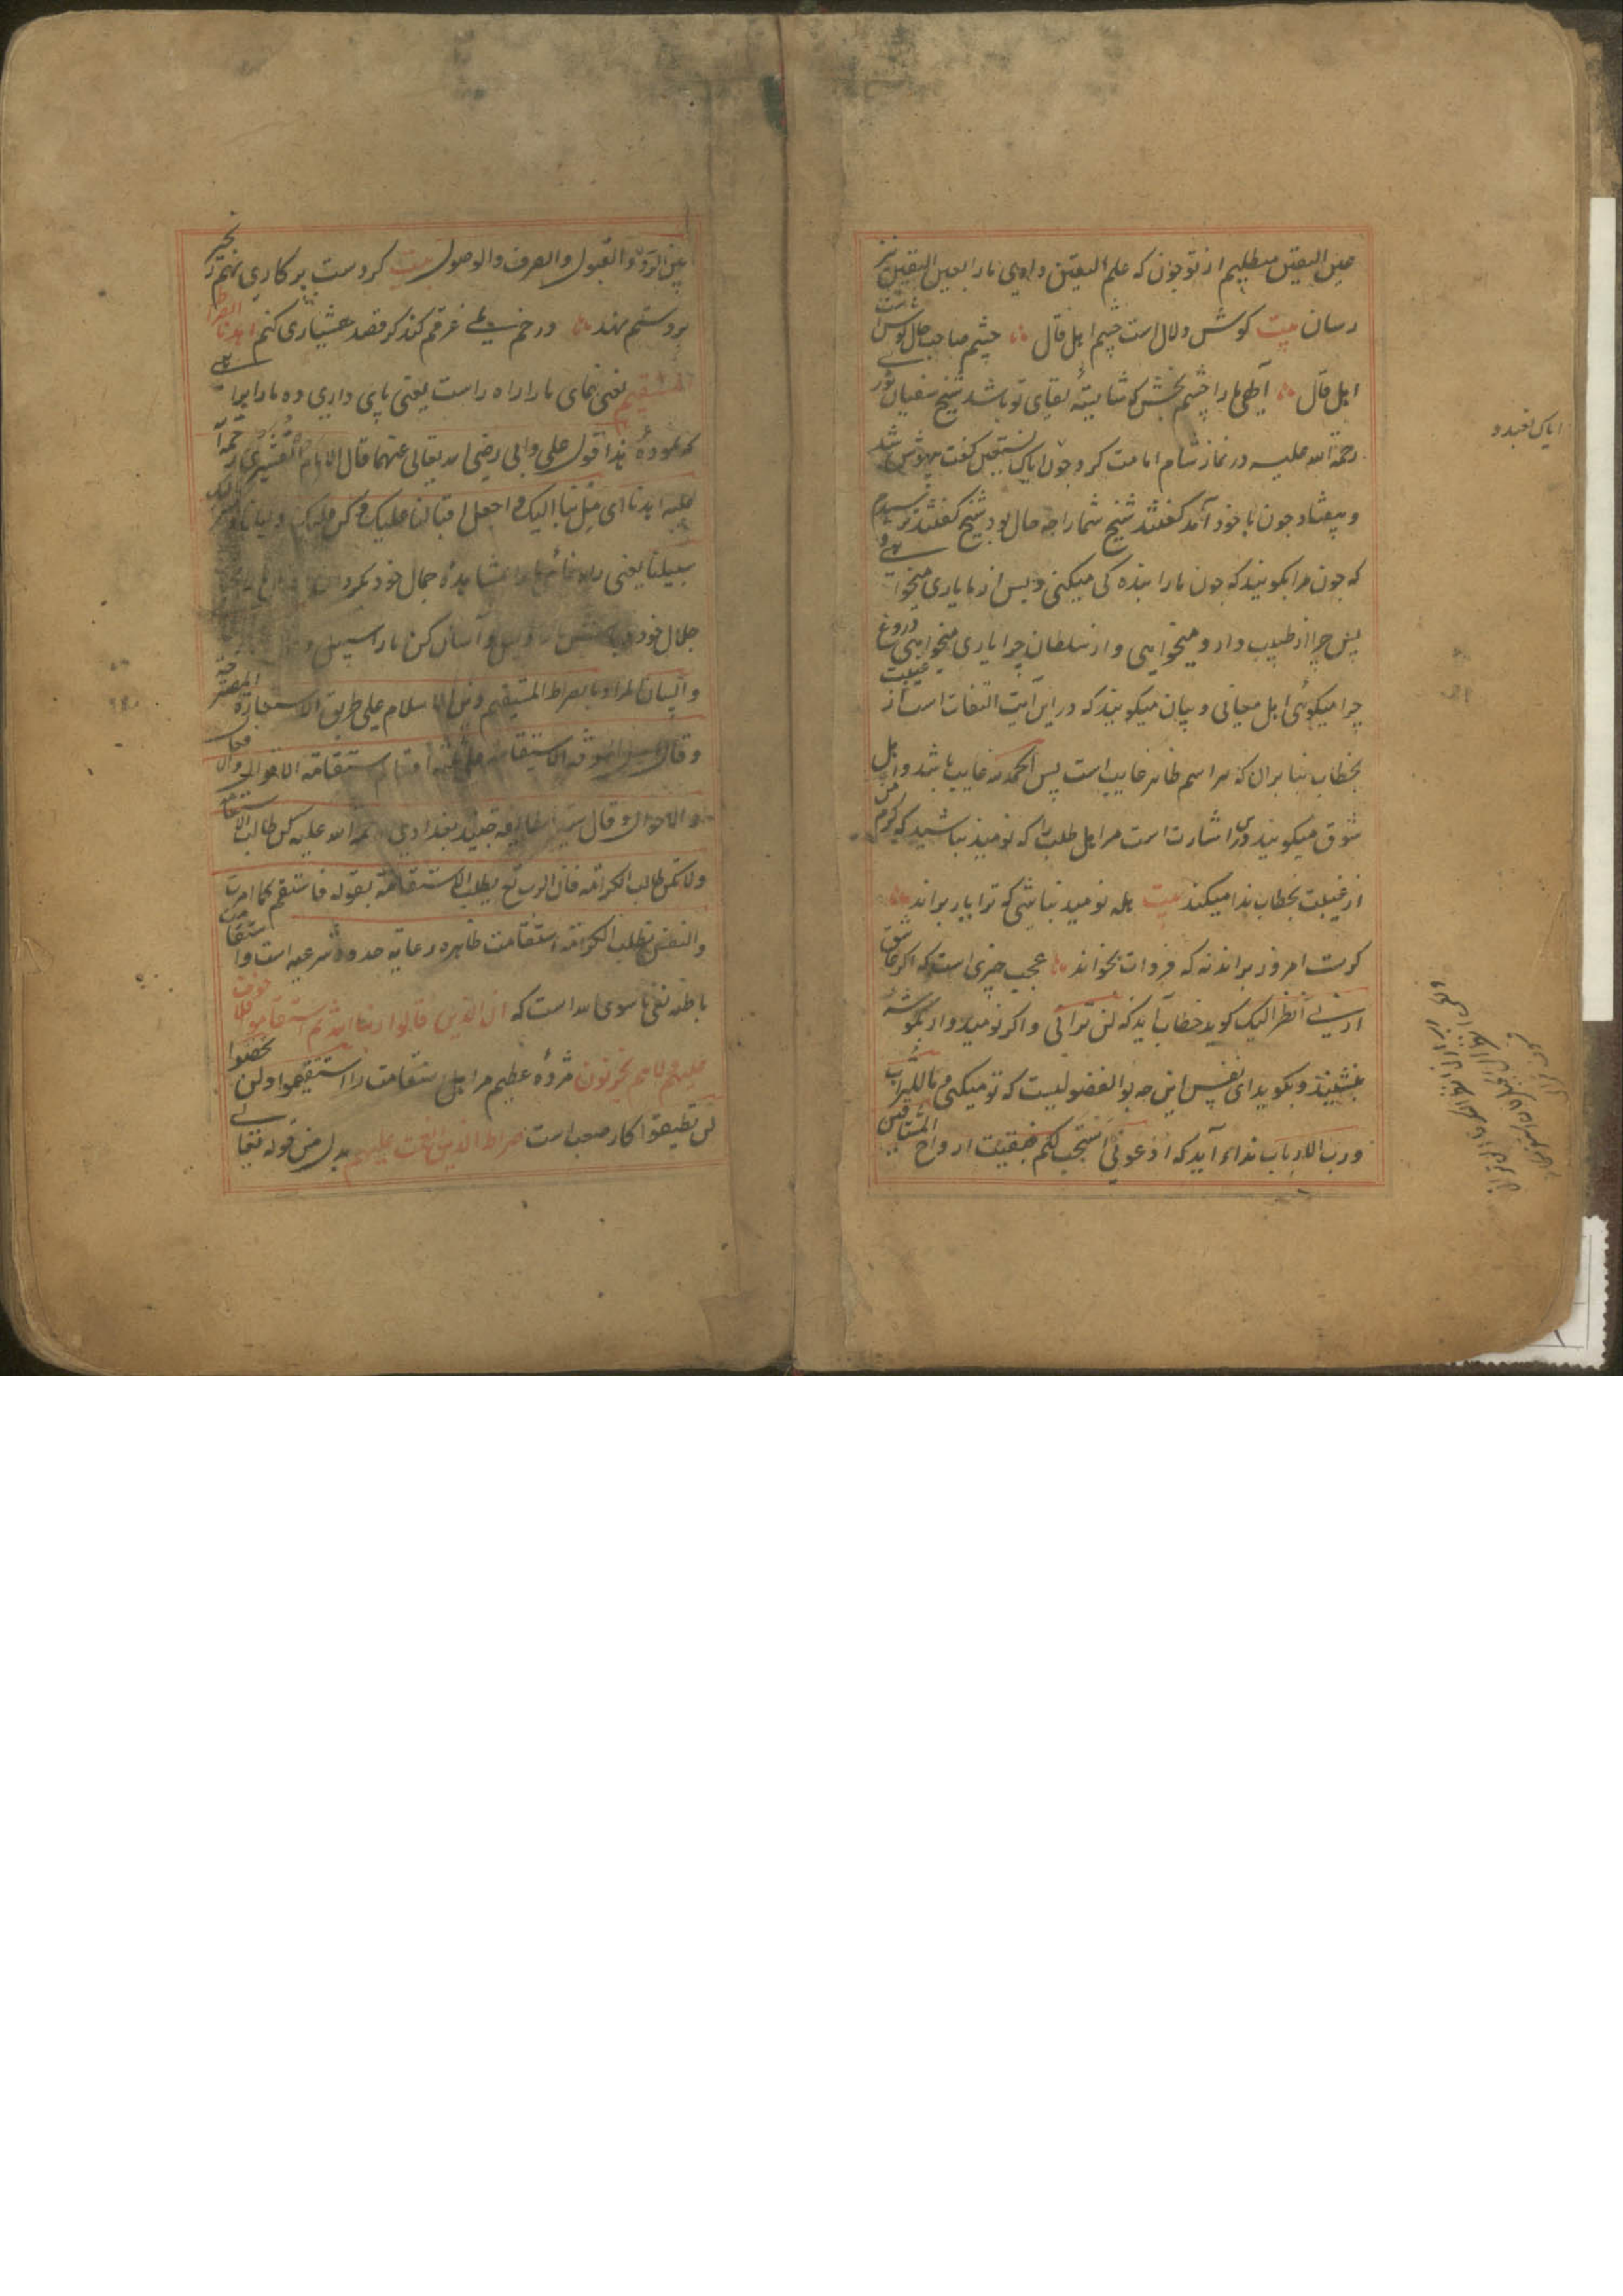 عین الیقین میطلبیم از تو چون که علم الیقین دادی ما را بعین الیقین نیز
رسان بیت کوش دلال است چشم اهل قال چشم صاحب حال کوش
اهل قال الهی ما را چشم بخش که شایستهٔ بقای تو باشد شیخ سفیان ثور
رحمة الله علیه در نماز شام امامت کرد چون ایاک نستعین کفت بیهوش شد
و بیفتاد چون با خود آمد کفتند شیخ شما را چه حال بود شیخ کفتند ترسیدم
که چون مرا بکویند که چون ما را بنده کی میکنی و پس از ما یاری میخوا
پس چرا از طبیب دارو میخواهی و از سلطان چرا یاری میخواهی دروغ
چرا میکوئی اهل معانی و بیان میکویند که در این آیت التفات است از غیبت
بخطاب بنا بر آن که هر اسم ظاهر غایب است پس الحمد لله غایب باشد و اهل
شوق میکویند در اشارت است مر اهل طلب را که نومید نباشید که کرم من
از غیبت بخطاب ندا میکند بیت هله نومید نباشی که ترا یار براند
کرت امروز براند نه که فردات بخواند عجب چیزی است که اکر عاشق
ارنی انظر الیک کوید خطاب آید که لن ترانی و اکر نومیدوار بکوشهٔ
بنشیند و بکوید ای نفس این چه بوالفضولیست که تو میکنی ما للتراب
و رب الارباب نداء آید که ادعونی استجب لکم حقیقت ارواح المشتاقین
ایاک نعبد و
بین الرد و القبول و الصرف و الوصول بیت کر دست بر کاری نهم زنجیر
بر دستم نهد در خم می غرقم کند کر قصد هشیاری کنم اهدنا الصراط
المستقیم یعنی نمای ما را راه راست یعنی پای داری ده ما را برا
که نموده هذا قول علی و ابی رضی الله تعالی عنهما قال الامام القشیری رحمة الله
علیه اهدنا ای مل بنا الیک و اجعل اقبالنا علیک و کن علیک دلیلنا و یسر الیک
سبیلنا یعنی راه نمای ما را بمشاهدهٔ جمال خود
جلال خود و آسان کن ما را سبیل
و البیان المراد بالصراط المستقیم دین الاسلام علی طریق الاستعارة المصرحة
و قال الاستقامة علی ثلثة اقسام استقامة الاقوال و الافعال
و الاحوال و قال سید الطایفه جنید بغدادی رحمة الله علیه کن طالب الاستقامة
و لا تکن طالب الکرامة فان الرب تع یطلب الاستقامة بقوله فاستقم کما امرت
و النفس تطلب الکرامة استقامت ظاهره رعایه حدود شرعیه است و استقامت
باطنه نفی ما سوی الله است که ان الذین قالوا ربنا الله ثم استقاموا فلا خوف
علیهم و لا هم یحزنون مژدهٔ عظیم مر اهل استقامت را استقیموا و لن تحصوا
لن تطیقوا کار صعب است صراط الذین انعمت علیهم بدل من قوله تعا